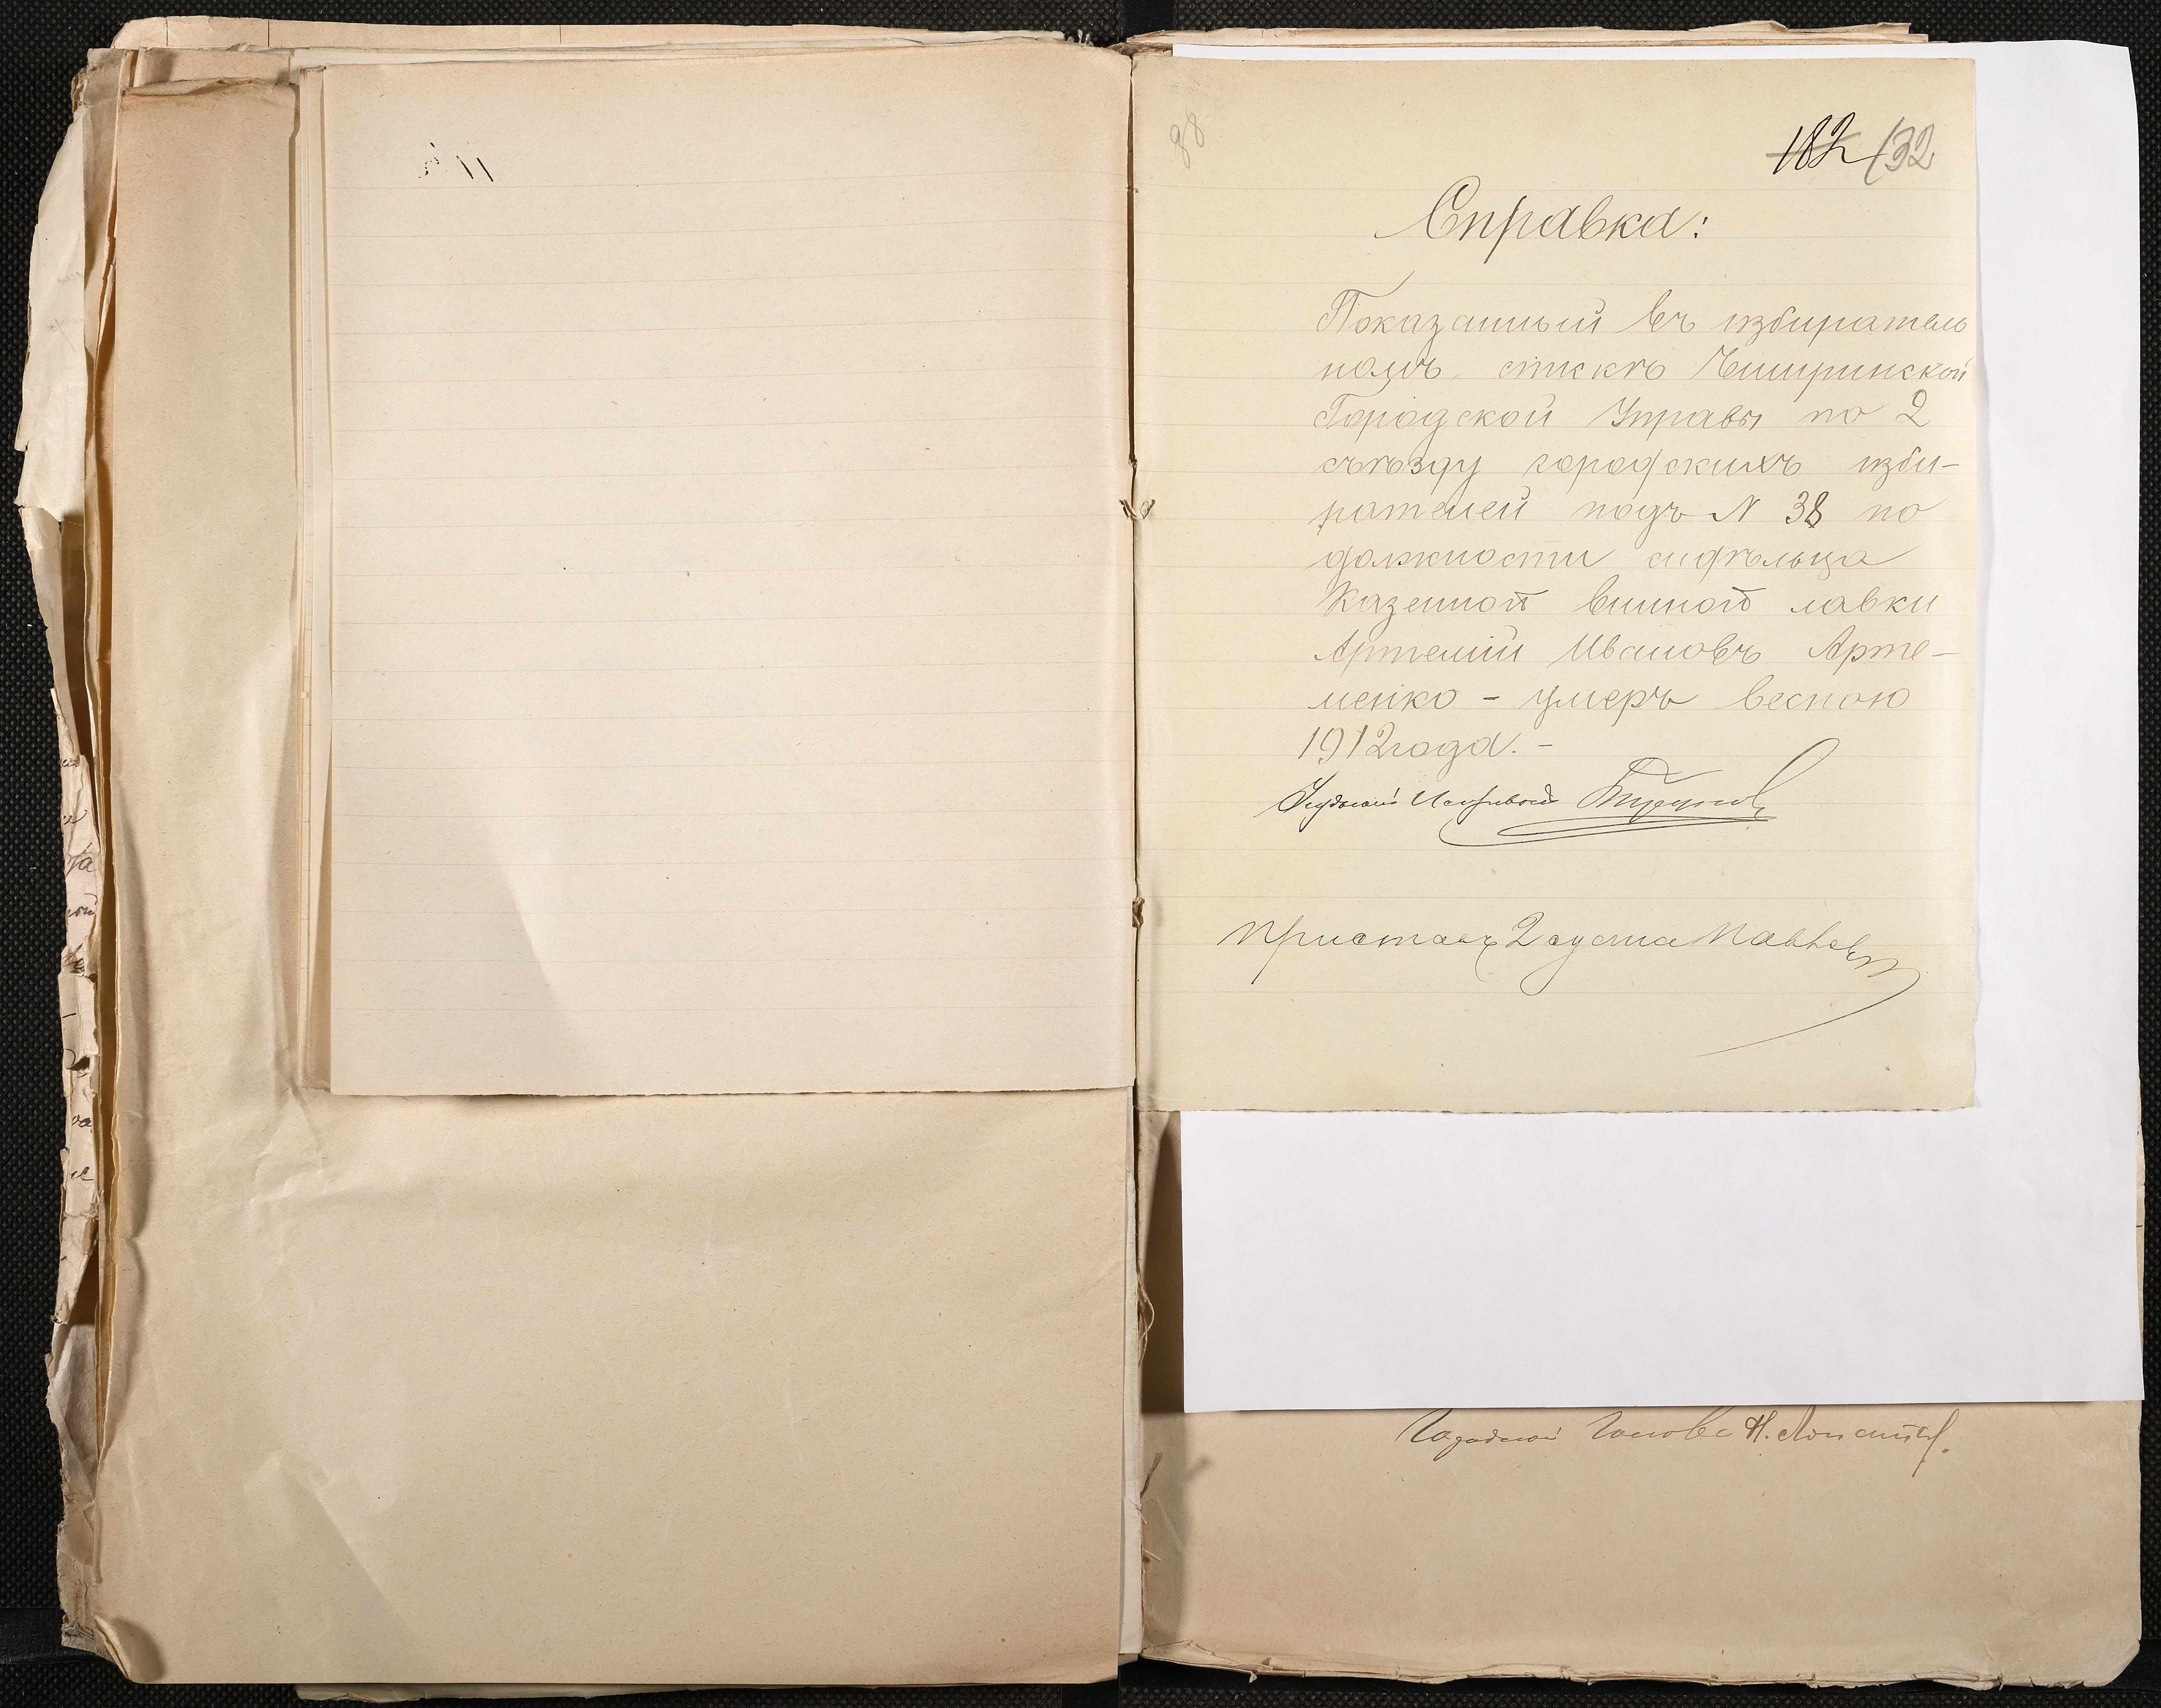 182 132
Справка:
Показанный въ избиратель
номъ спискѣ Чигиринской
Городской Управы по 2
съѣзду городскихъ изби-
рателей подъ N 38 по
должности сидѣльца
Казенной винной лавки
Артемій Ивановъ Арте-
менко - умеръ весною
1912 года. -
Приставъ 2 стана
Городской Голова Н.